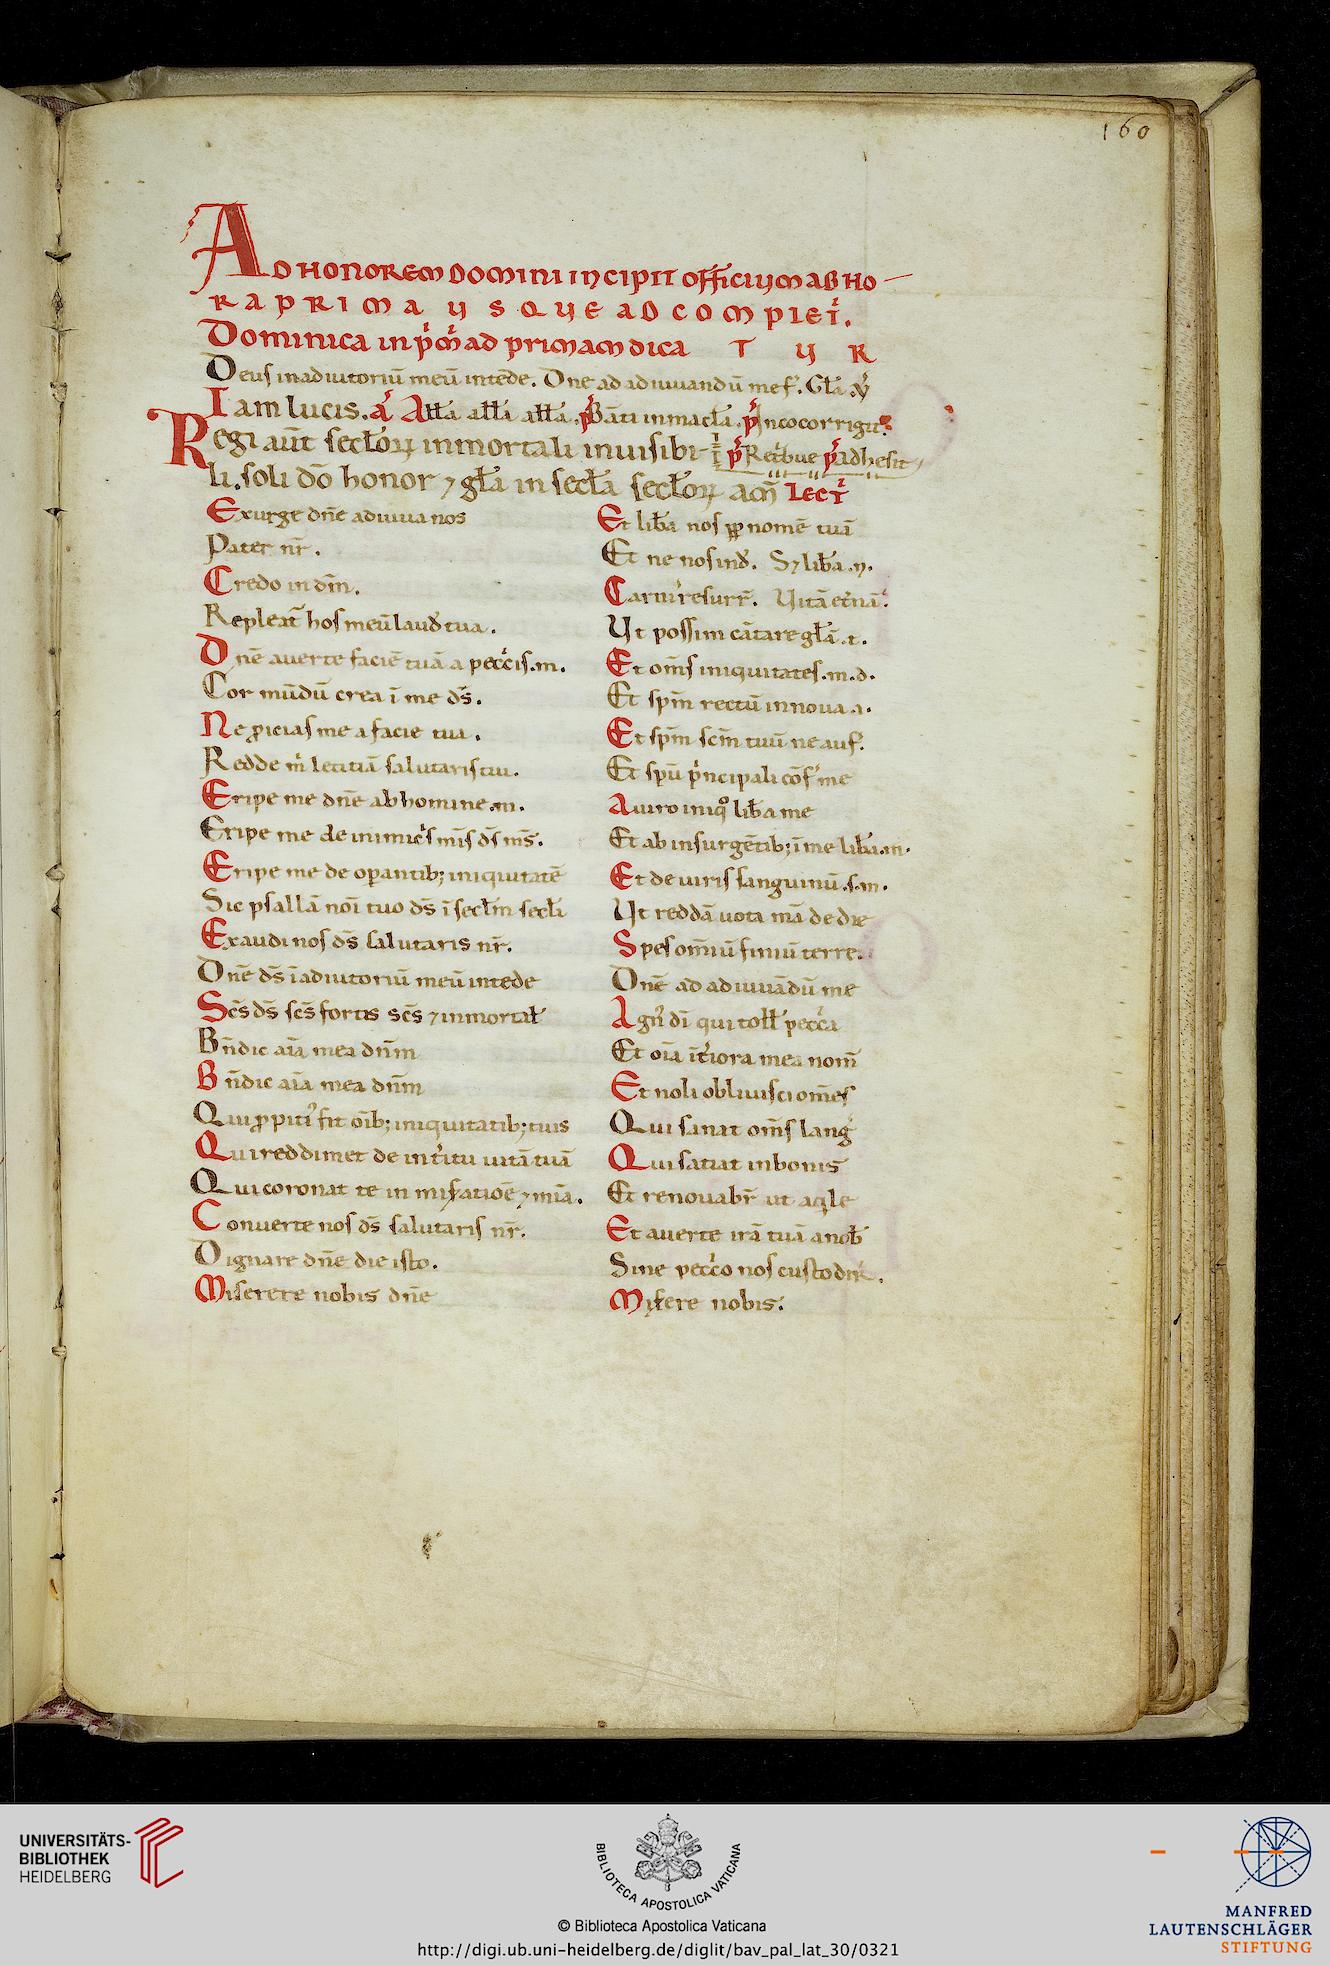 160
AD HONOREM DOMINI INCIPIT OFFICIUM AB HO-
RA PRIMA USQUE AD COMPLET̄.
Dominica in p̄m̄ ad primam dica T U R
Deus in adiutoriū meū intēde. Dn̄e ad adiuuandū me f. Gl̄a. ꝟ
Iam lucis. a Allł̄a allł̄a allł̄a. p̄ Bāti inmacl̄a. p̄ In quo corrigit.
Regi aūt secl̄oꝝ inmortali inuisibi- p̄ Retribue p̄ Adhesit
li. soli dō honor ⁊ gl̄a in secl̄a secl̄oꝝ am̄ Lect̄
Exurge dn̄e adiuua nos
Et lib̄a nos ꝓp nomē tuū
Pater nr̄.
Et ne nos ind̄. S⁊ lib̄a. n.
Credo in dm̄.
Carnis resurr̄. Uitā et̄nā.
Repleat̄ hos meū laud̄ tua.
Ut possim cātare gl̄ā. t.
Dn̄e auerte faciē tuā a peccis. m.
Et om̄s iniquitates. m. d.
Cor mūdū crea ī me ds̄.
Et spm̄ rectū innoua. a.
Ne ꝓicias me a facie tua.
Et spm̄ scm̄ tuū ne auf.
Redde m̄ letitiā salutaris tui.
Et spū p̄ncipali cōf me
Eripe me dn̄e ab homine. m.
A uiro iniqͦ lib̄a me
Eripe me de inimicis mis̄ ds̄ ms̄.
Et ab insurgētib; ī me lib̄a. m.
Eripe me de oꝑantib; iniquitatē
Et de uiris sanguinū. s. m.
Sic psallā noī tuo ds̄ ī secl̄m secl̄i
Ut reddā uota mā de die
Exaudi nos ds̄ salutaris nr̄.
Spes om̄iū finiū terre.
Dn̄e ds̄ ī adiutoriū meū intēde
Dn̄e ad adiuuādū me
Scs̄ ds̄ scs̄ fortis scs̄ ⁊ inmortał
Agn̄ dī qui tolł pecc̄a
Bn̄dic aīa mea dn̄m
Et oīa īt̄iora mea nom̄
Bn̄dic aīa mea dn̄m
Et noli obliuisci om̄es
Qui ꝓpiti fit oīb; iniquitatib; tuis
Qui sanat om̄s lanḡ
Qui reddimet de int̄itu uitā tuā
Qui satiat in bonis
Qui coronat te in misatiōe ⁊ mīa.
Et renouabr̄ ut aqle
Conuerte nos ds̄ salutaris nr̄.
Et auerte irā tuā a nob̄
Dignare dn̄e die isto.
Sine pecc̄o nos custodir̄.
Miserere nobis dn̄e
Misere nobis.
UNIVERSITÄTS-
BIBLIOTHEK
HEIDELBERG
BIBLIOTECA APOSTOLICA VATICANA
© Biblioteca Apostolica Vaticana
http://digi.ub.uni-heidelberg.de/diglit/bav_pal_lat_30/0321
MANFRED
LAUTENSCHLÄGER
STIFTUNG